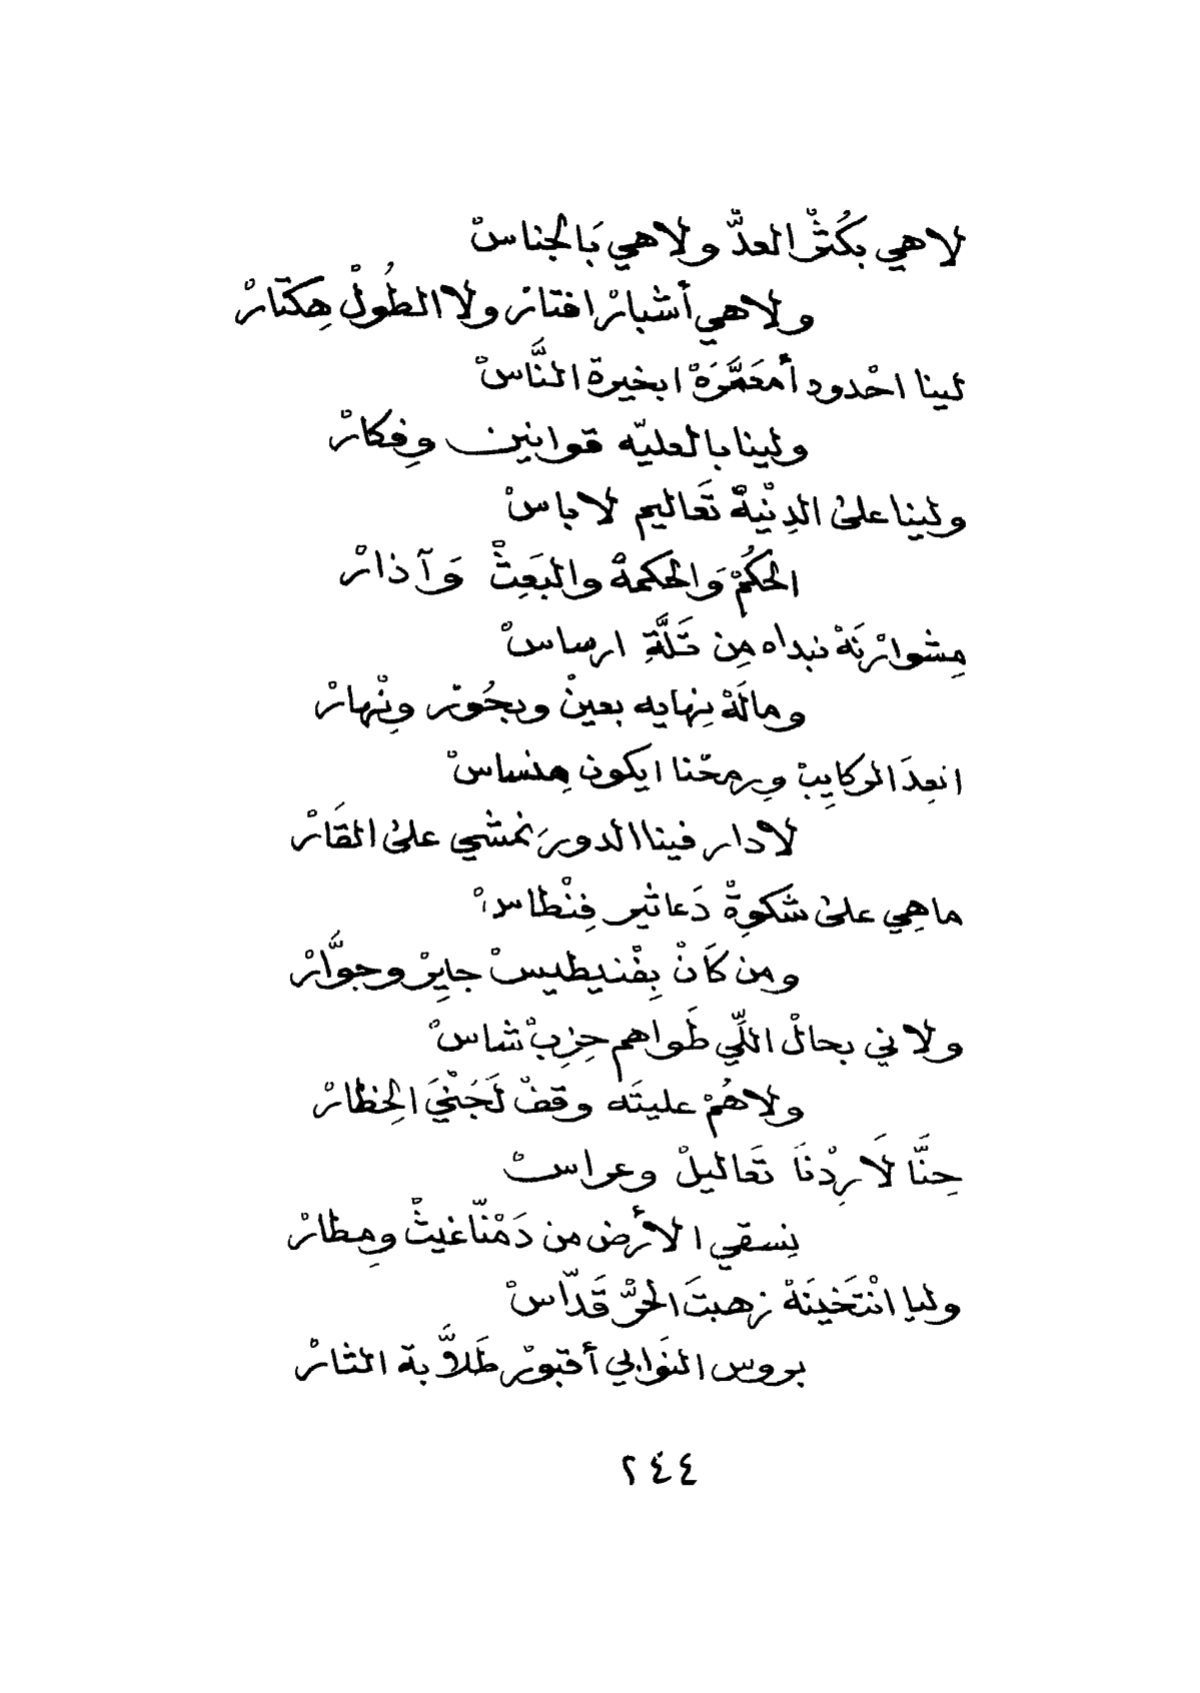 لاهي بكُثْر العدّ ولاهي بَالجناسْ
ولاهي أشبارْ افتارْ ولا الطُولْ هِكتارْ
لينا احْدود أمعَمَّرَهْ ابخيرة النَّاسْ
ولينا بالعليّه قوانين وفِكارْ
ولينا على الدِنْيهْ تَعاليم لاباسْ
الحكُمْ وَالحكمهْ والبَعِثْ وَآذارْ
مِشوارْنَهْ نبداه مِن تَلَّةِ ارساسْ
ومالَهْ نِهايه بعينْ ويجُوزْ ونْهارْ
انعِدَ الركايِبْ ورمحّنا ايكون مِنساسْ
لادار فينا الدور نَمشي على القَارْ
ماهِي على شكوةْ دَعاثير فِنْطاسْ
ومن كَانْ بِفْنيطيسْ جايِرْ وجوَّارْ
ولاني بحالْ اللِّي طَواهم حِزِبْ شاسْ
ولاهُمْ عليتَه وقفْ لَجَنْيَ الخِظارْ
حِنَّا لَا رِدْنَا تَعاليلْ وعراسْ
نِسقي الأرض من دَمْنّا غيثْ ومِطارْ
وليا انْتَخينَهْ زهبتَ الحرّ قَدّاسْ
بروس النوَابي أقبورْ طَلاَّبة الثارْ
٢٤٤